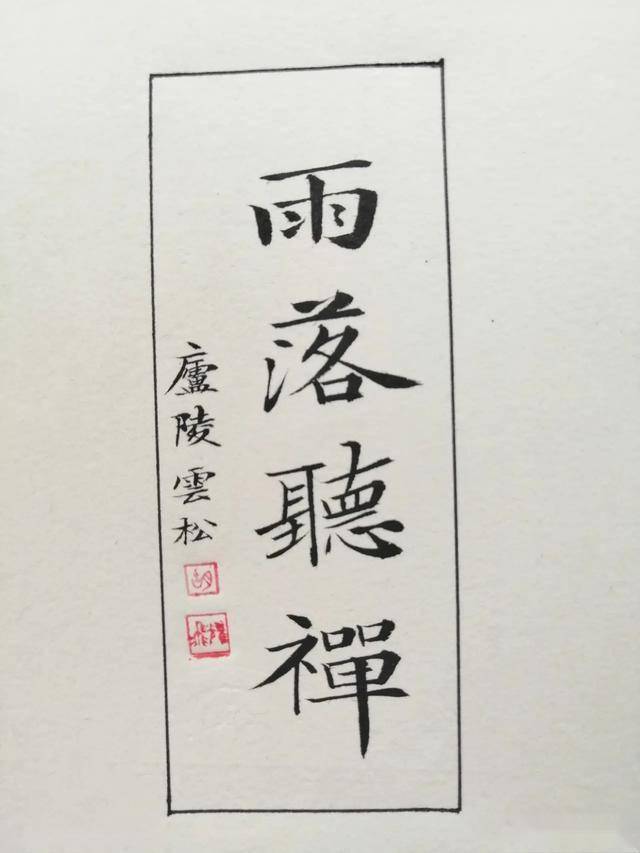 雨落聽禪
廬陵雲松